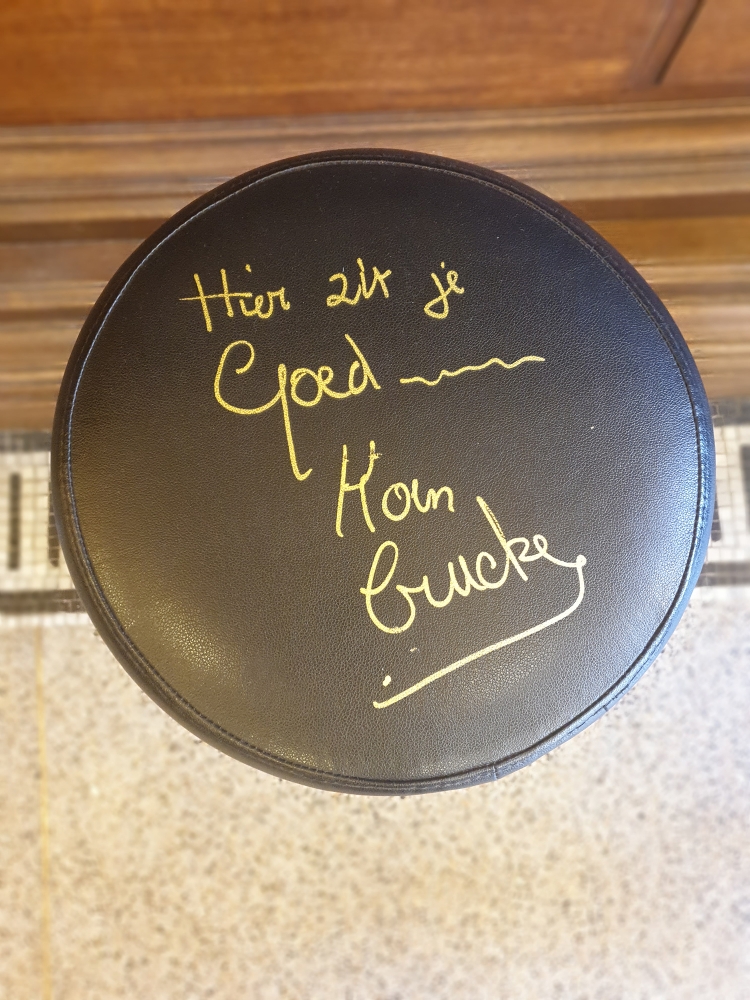 Hier zit je
Goed
Koen
Crucke